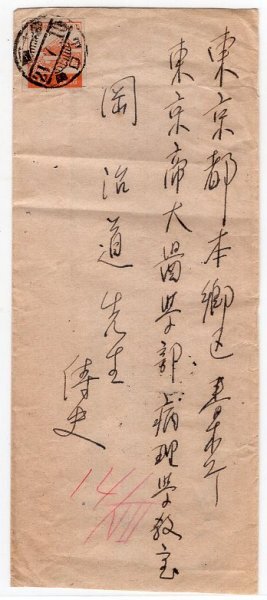 東京都本郷区
東京帝大醫学部病理学教室
岡治道先生
侍史
14/VII